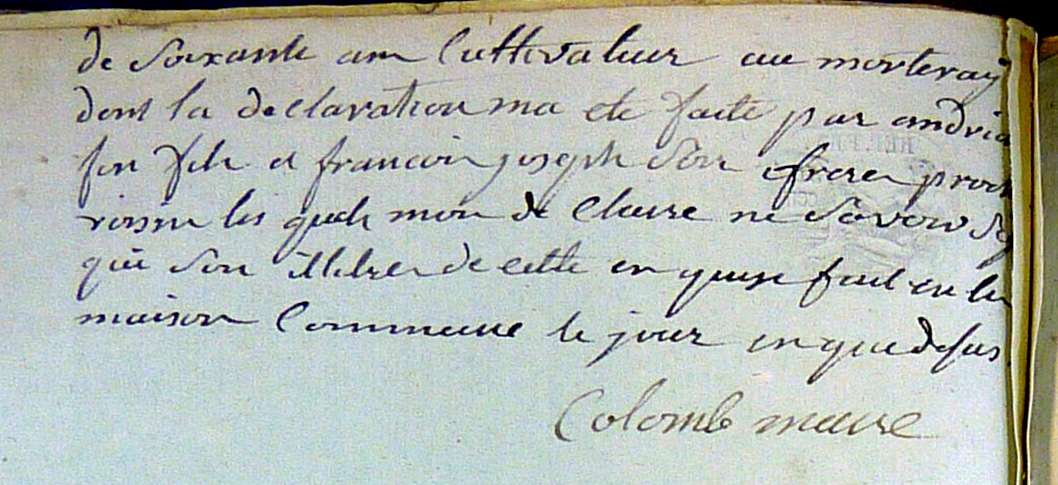 de soixante ans Cultivateur au morteray
dont la declaration ma ete faite par andria
son fils et francois joseph son frere proch
voisin les quels mon de Clare ne savoir
qui son illitre de cette en quise fait en la
maison Commune le jour en que desus
Colomb maire